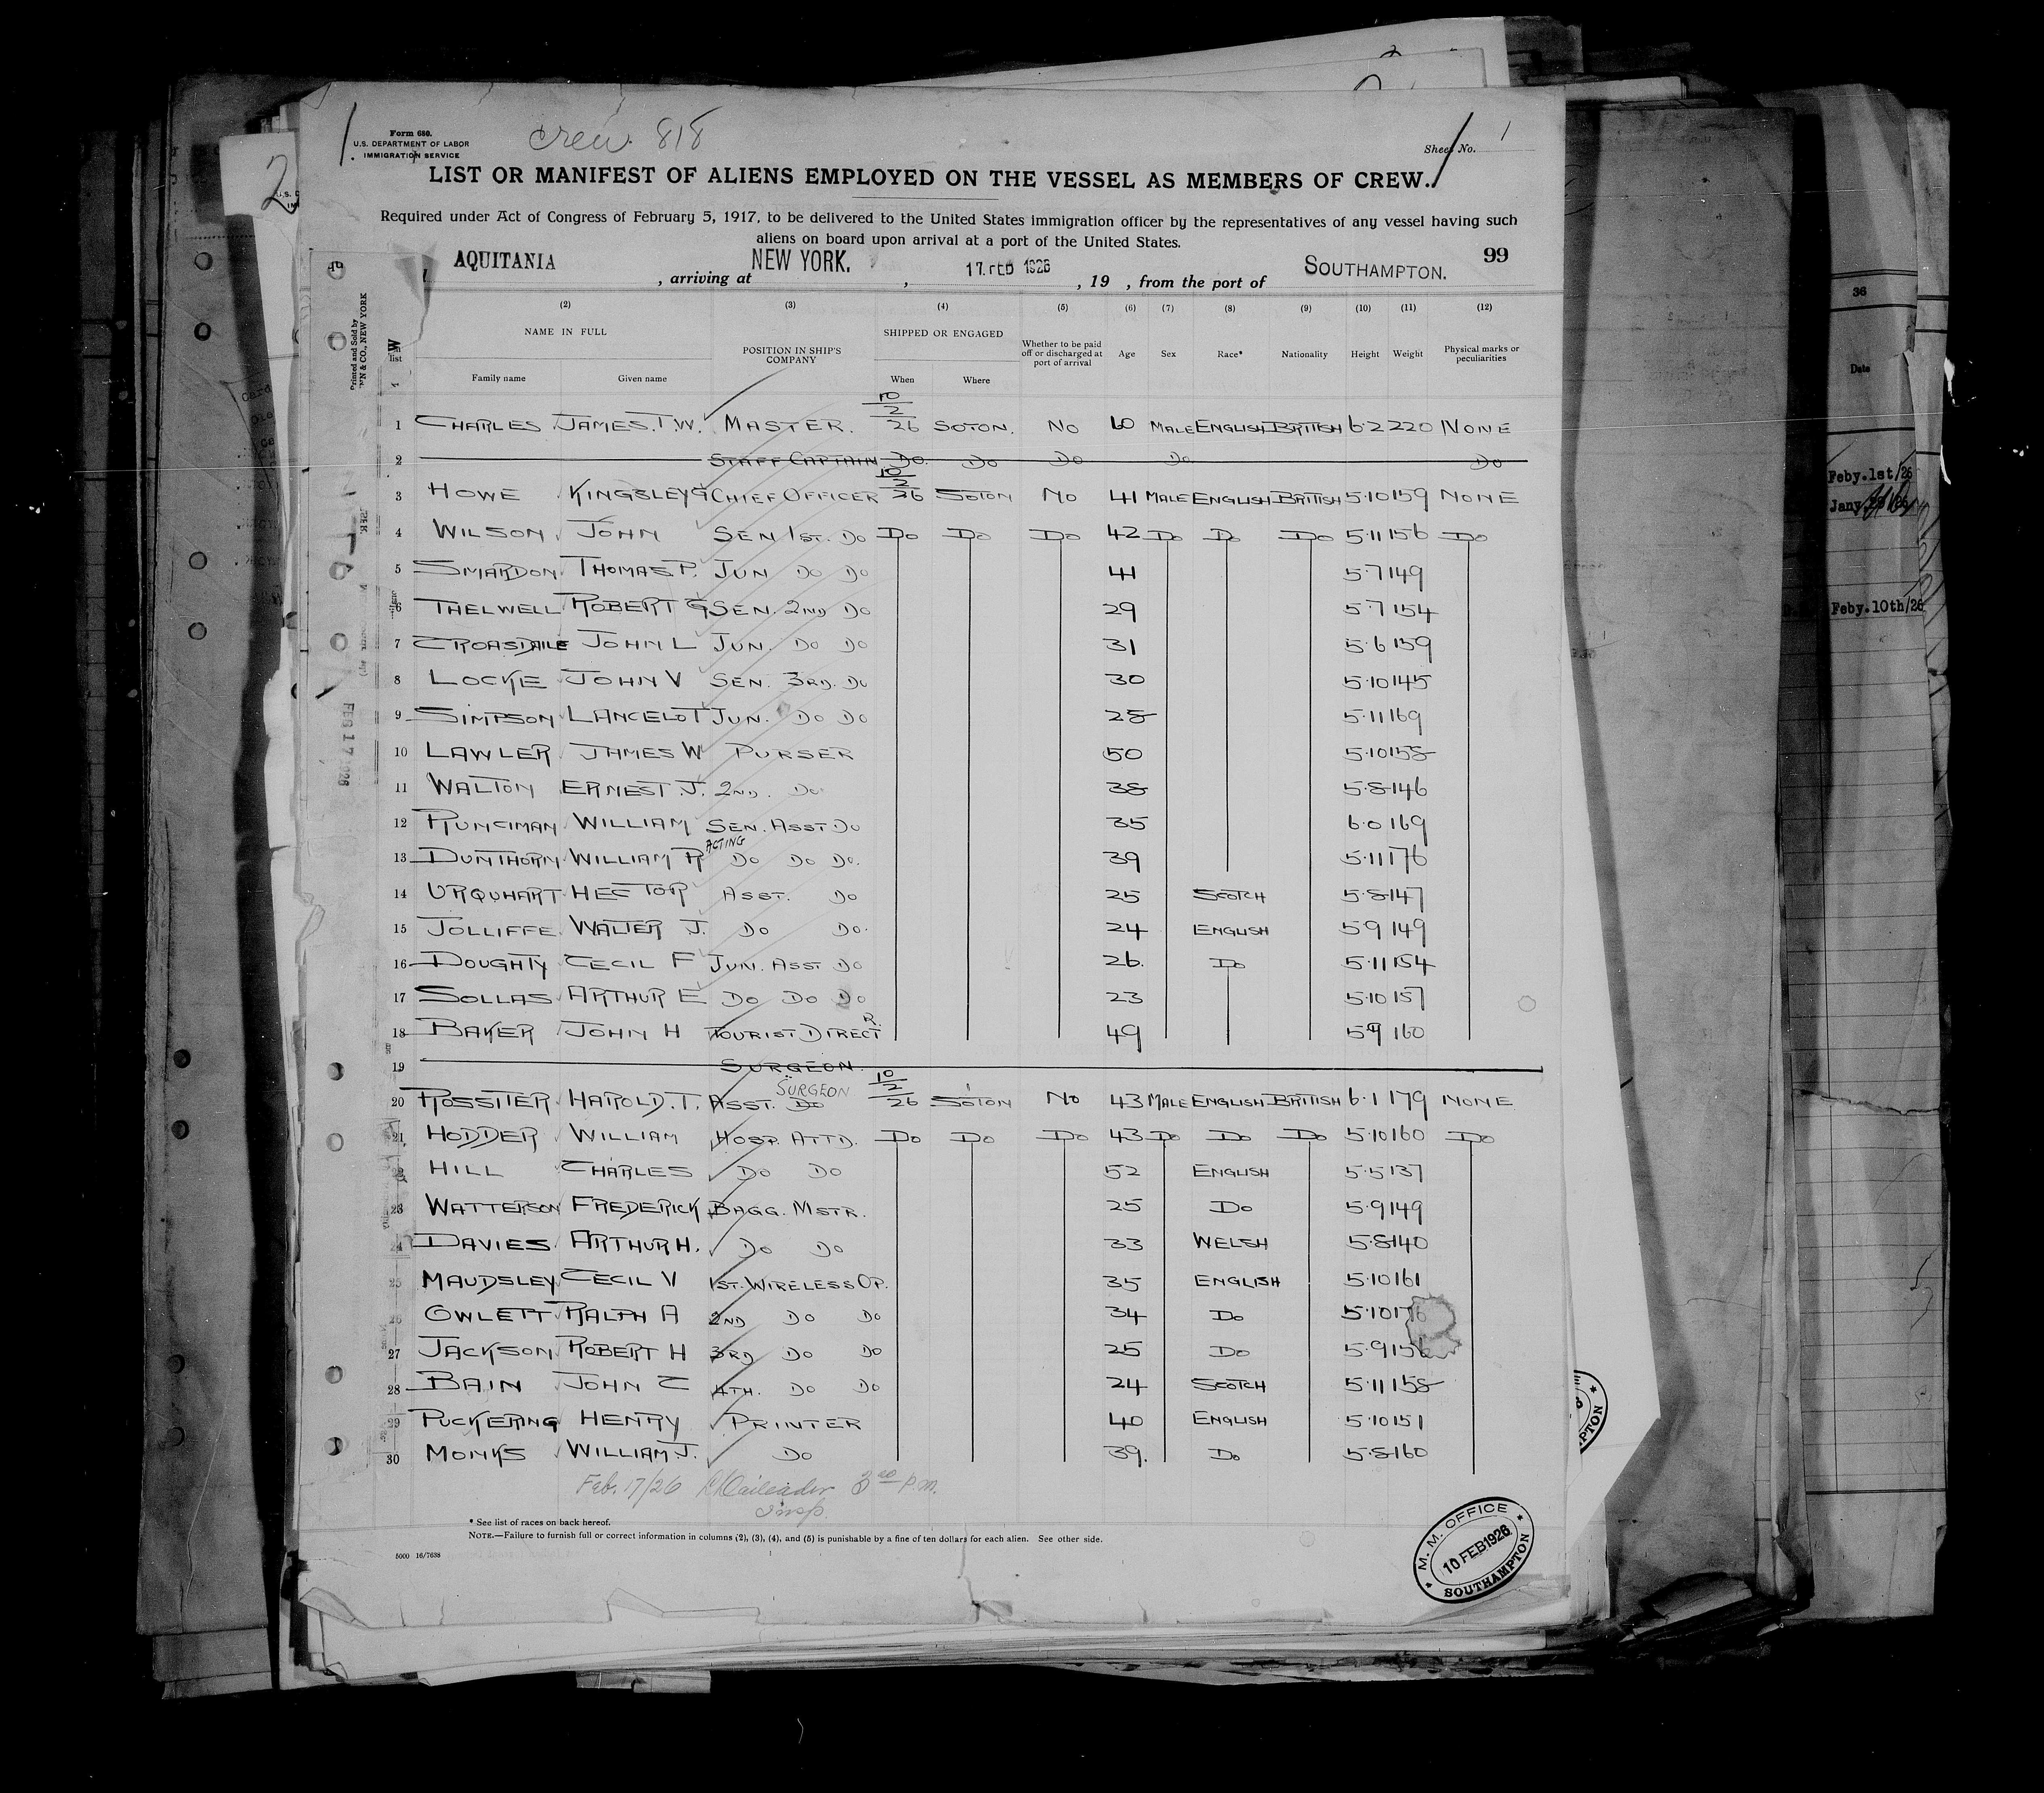 Form 680.
U.S. DEPARTMENT OF LABOR
IMMIGRATION SERVICE
Crew. 818
Sheet No. 1
LIST OR MANIFEST OF ALIENS EMPLOYED ON THE VESSEL AS MEMBERS OF CREW.
Required under Act of Congress of February 5, 1917, to be delivered to the United States immigration officer by the representatives of any vessel having such
aliens on board upon arrival at a port of the United States.
AQUITANIA , arriving at NEW YORK. , 17. FEB 1926 , 19 , from the port of SOUTHAMPTON. 99
(2) (3) (4) (5) (6) (7) (8) (9) (10) (11) (12)
NAME IN FULL POSITION IN SHIP'S COMPANY SHIPPED OR ENGAGED Whether to be paid off or discharged at port of arrival Age Sex Race* Nationality Height Weight Physical marks or peculiarities
Family name Given name When Where
1 CHARLES JAMES.T.W. MASTER. 10/2 26 SOTON. NO 60 MALE ENGLISH BRITISH 6.2 220 NONE
2 STAFF CAPTAIN DO DO DO DO DO
3 HOWE KINGSLEY G CHIEF OFFICER 10/2 26 SOTON NO 41 MALE ENGLISH BRITISH 5.10 159 NONE
4 WILSON JOHN SEN 1ST. DO DO DO DO 42 DO DO DO 5.11 156 DO
5 SMARDON THOMAS P. JUN DO DO 41 5.7 149
6 THELWELL ROBERT G SEN. 2ND DO 29 5.7 154
7 CROASDAILE JOHN L JUN. DO DO 31 5.6 159
8 LOCKE JOHN V SEN. 3RD. DO 30 5.10 145
9 SIMPSON LANCELOT JUN. DO DO 28 5.11 169
10 LAWLER JAMES W PURSER 50 5.10 158
11 WALTON ERNEST J. 2ND. DO 38 5.8 146
12 RUNCIMAN WILLIAM SEN. ASST DO 35 6.0 169
13 DUNTHORN WILLIAM R ACTING DO DO DO. 39 5.11 176
14 URQUHART HECTOR ASST. DO 25 SCOTCH 5.8 147
15 JOLLIFFE WALTER J. DO DO. 24 ENGLISH 5.9 149
16 DOUGHTY CECIL F JUN. ASST DO 26. DO 5.11 154
17 SOLLAS ARTHUR E DO DO DO 23 5.10 157
18 BAKER JOHN H TOURIST DIRECTR. 49 5.9 160
19 SURGEON.
20 ROSSITER HAROLD.T. ASST. DO SURGEON 10/2 26 SOTON NO 43 MALE ENGLISH BRITISH 6.1 179 NONE
21 HODDER WILLIAM HOSP. ATTD. DO DO DO 43 DO DO DO 5.10 160 DO
22 HILL CHARLES DO DO 52 ENGLISH 5.5 137
23 WATTERSON FREDERICK BAGG. MSTR. 25 DO 5.9 149
24 DAVIES ARTHUR H. DO DO 33 WELSH 5.8 140
25 MAUDSLEY CECIL V 1ST. WIRELESS OP. 35 ENGLISH 5.10 161
26 OWLETT RALPH A 2ND DO DO 34 DO 5.10 176
27 JACKSON ROBERT H 3RD DO DO 25 DO 5.9 156
28 BAIN JOHN C 4TH. DO DO 24 SCOTCH 5.11 158
29 PUCKERING HENRY PRINTER 40 ENGLISH 5.10 151
30 MONKS WILLIAM J. DO 39. DO 5.8 160
Feb. 17/26 3 00 P.M.
Insp.
* See list of races on back hereof.
NOTE.—Failure to furnish full or correct information in columns (2), (3), (4), and (5) is punishable by a fine of ten dollars for each alien. See other side.
5000 16/7638
M. M. OFFICE
10 FEB 1926
SOUTHAMPTON
FEB 17 1926
36
Date
Feby. 1st/26
Jany.
Feby. 10th/26
2